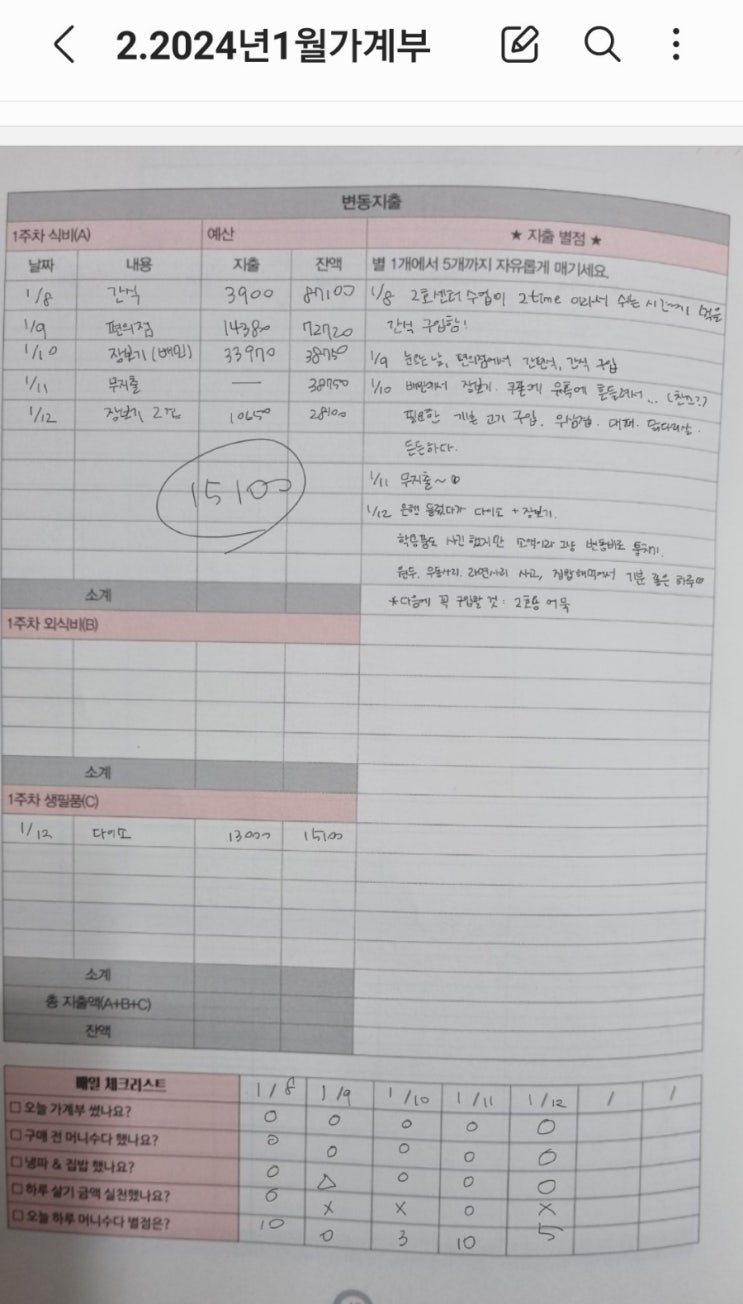 2.2024년1월가계부
변동지출
1주차 식비(A) 예산 ★ 지출 별점 ★
날짜 내용 지출 잔액 별 1개에서 5개까지 자유롭게 매기세요.
1/8 간식 3900 87100 1/8 2호센터 수업이 2time 이라서 쉬는 시간에 먹을
1/9 편의점 14380 72720 간식 구입함!
1/10 장보기 (배민) 33970 38750 1/9 눈오는 날, 편의점에서 간편식, 간식 구입
1/11 무지출 — 38750 1/10 배민에서 장보기. 쿠폰에 유혹에 흔들려서... (찬스?)
1/12 장보기 2번 10650 28100 필요한 고기 구입. 우삼겹. 대패. 닭다리살.
든든하다.
15100
1/11 무지출~
1/12 은행 들렀다가 다이소 + 장보기.
학용품도 사긴 했지만 소액이라 그냥 변동비로 퉁치기.
소계 원두. 우동사리. 라면사리 사고, 집밥해먹어서 기분 좋은 하루
1주차 외식비(B) *다음에 꼭 구입할 것 : 2호용 어묵
소계
1주차 생필품(C)
1/12 다이소 13000 15100
소계
총 지출액(A+B+C)
잔액
매일 체크리스트 1/8 1/9 1/10 1/11 1/12 / /
□ 오늘 가계부 썼나요? O O O O O
□ 구매 전 머니수다 했나요? O O O O O
□ 냉파 & 집밥 했나요? O △ O O O
□ 하루 살기 금액 실천했나요? O X X O X
□ 오늘 하루 머니수다 별점은? 10 0 3 10 5